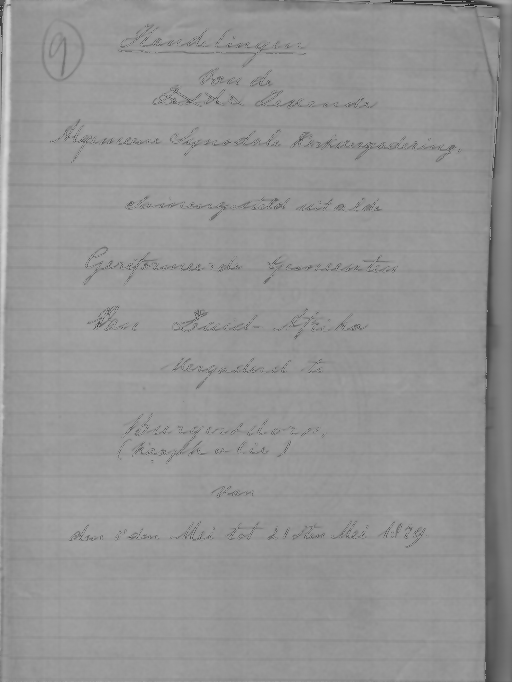 9
Handelingen
Van de
Algemeene Synodale Kerkvergadering,
Saamengesteld uit al de
Gereformeerde Gemeenten
Van Zuid-Afrika
Vergaderd te
Burgersdorp,
(Kaapkolie)
van
den Mei tot 21sten Mei 1879